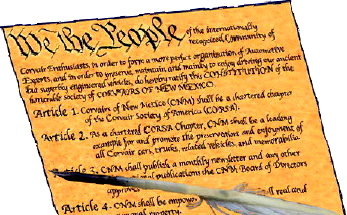 We the People of the internationally
recognized Community of
Corvair Enthusiasts, in order to form a more perfect organization of Automotive
Experts, and in order to preserve, maintain and mainly to enjoy driving our ancient
but superbly engineered vehicles, do hereby ratify this CONSTITUTION of the
honorable society of CORVAIRS OF NEW MEXICO.
Article 1. Corvairs of New Mexico (CNM) shall be a chartered chapter
of the Corvair Society of America (CORSA).
Article 2. As a chartered CORSA Chapter, CNM shall be a leading
example for and promote the preservation and enjoyment of
all Corvair cars, trucks, related vehicles, and memorabilia.
Article 3. CNM shall publish a monthly newsletter and any other
publications the CNM Board of Directors
approves
Article 4. CNM shall be empow real and
personal property.